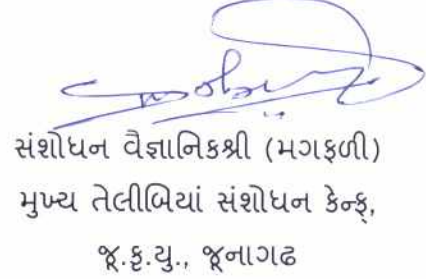 સંશોધન વૈજ્ઞાનિકશ્રી (મગફળી)
મુખ્ય તેલીબિયાં સંશોધન કેન્દ્ર,
જૂ.કૃ.યુ., જૂનાગઢ